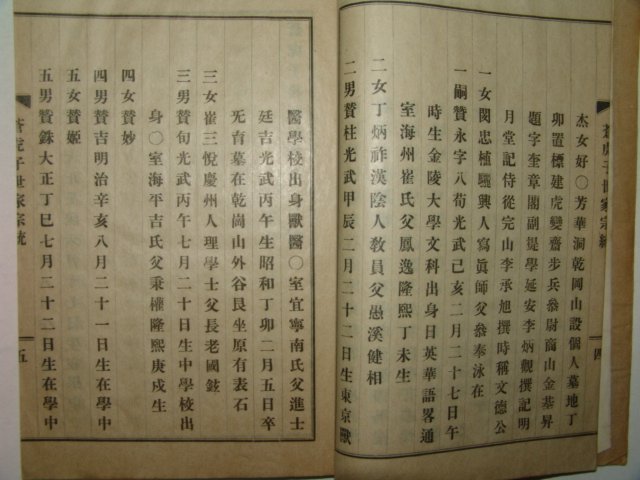 蒼虎子世家宗統
四
杰女好○芳華洞乾岡山設個人墓地丁
卯置標建虎變齋步兵叅尉商山金基昇
題字奎章閣副提學延安李炳觀撰記明
月堂記侍從完山李承旭撰時稱文德公
一女閔忠植驪興人寫眞師父叅奉泳在
一嗣贊永字八荀光武己亥二月二十七日午
時生金陵大學文科出身日英華語畧通
室海州崔氏父鳳逸隆熙丁未生
二女丁炳祚漢陰人敎員父愚溪健相
二男贊柱光武甲辰二月二十二日生東京獸
醫學校出身獸醫○室宜寧南氏父進士
廷吉光武丙午生昭和丁卯二月五日卒
旡育墓在乾崗山外谷艮坐原有表石
三女崔三悅慶州人理學士父長老國鉉
三男贊旬光武丙午七月二十日生中學校出
身○室海平吉氏父秉權隆熙庚戌生
四女贊妙
四男贊吉明治辛亥八月二十一日生在學中
五女贊姬
五男贊銖大正丁巳七月二十二日生在學中
蒼虎子世家宗統
五